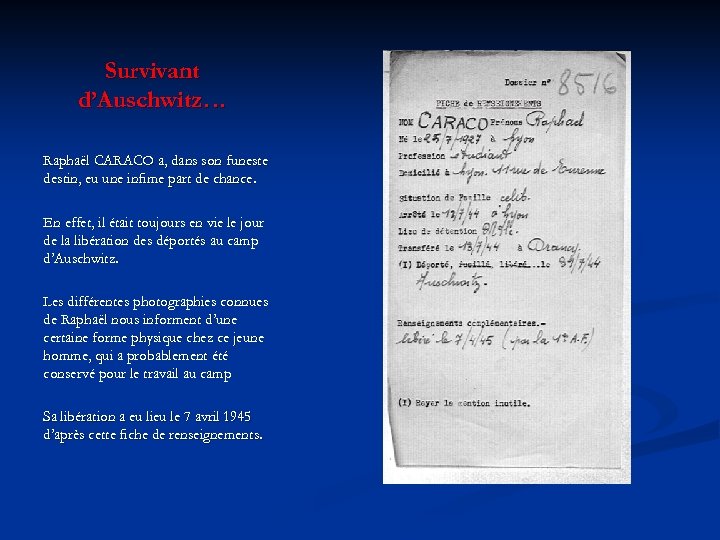 Survivant
d'Auschwitz…
Raphaël CARACO a, dans son funeste
destin, eu une infime part de chance.
En effet, il était toujours en vie le jour
de la libération des déportés au camp
d'Auschwitz.
Les différentes photographies connues
de Raphaël nous informent d'une
certaine forme physique chez ce jeune
homme, qui a probablement été
conservé pour le travail au camp
Sa libération a eu lieu le 7 avril 1945
d'après cette fiche de renseignements.
Dossier n° 8516
FICHE de RENSEIGNEMENTS
NOM CARACO Prénoms Raphael
Né le 25/7/1927 à Lyon
Profession étudiant
Domicilié à Lyon. 11 rue de Turenne
Situation de Famille celib.
Arrêté le 13/7/44 à Lyon
Lieu de détention
Transféré le 18/7/44 à Drancy
(I) Déporté, fusillé, libéré...le 31/7/44
Auschwitz.
Renseignements complémentaires.-
libéré le 7/4/45 (par la 1re A.F.)
(I) Rayer la mention inutile.